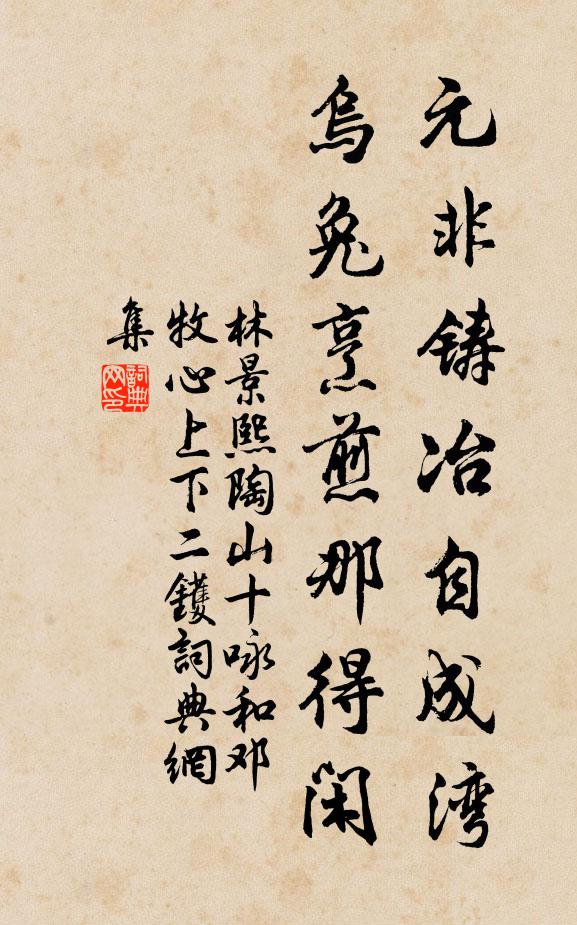 元非铸冶自成湾
烏兔烹煎那得闲
林景熙陶山十咏和邓
牧心上下二鑊詞典網
集
詞典网印